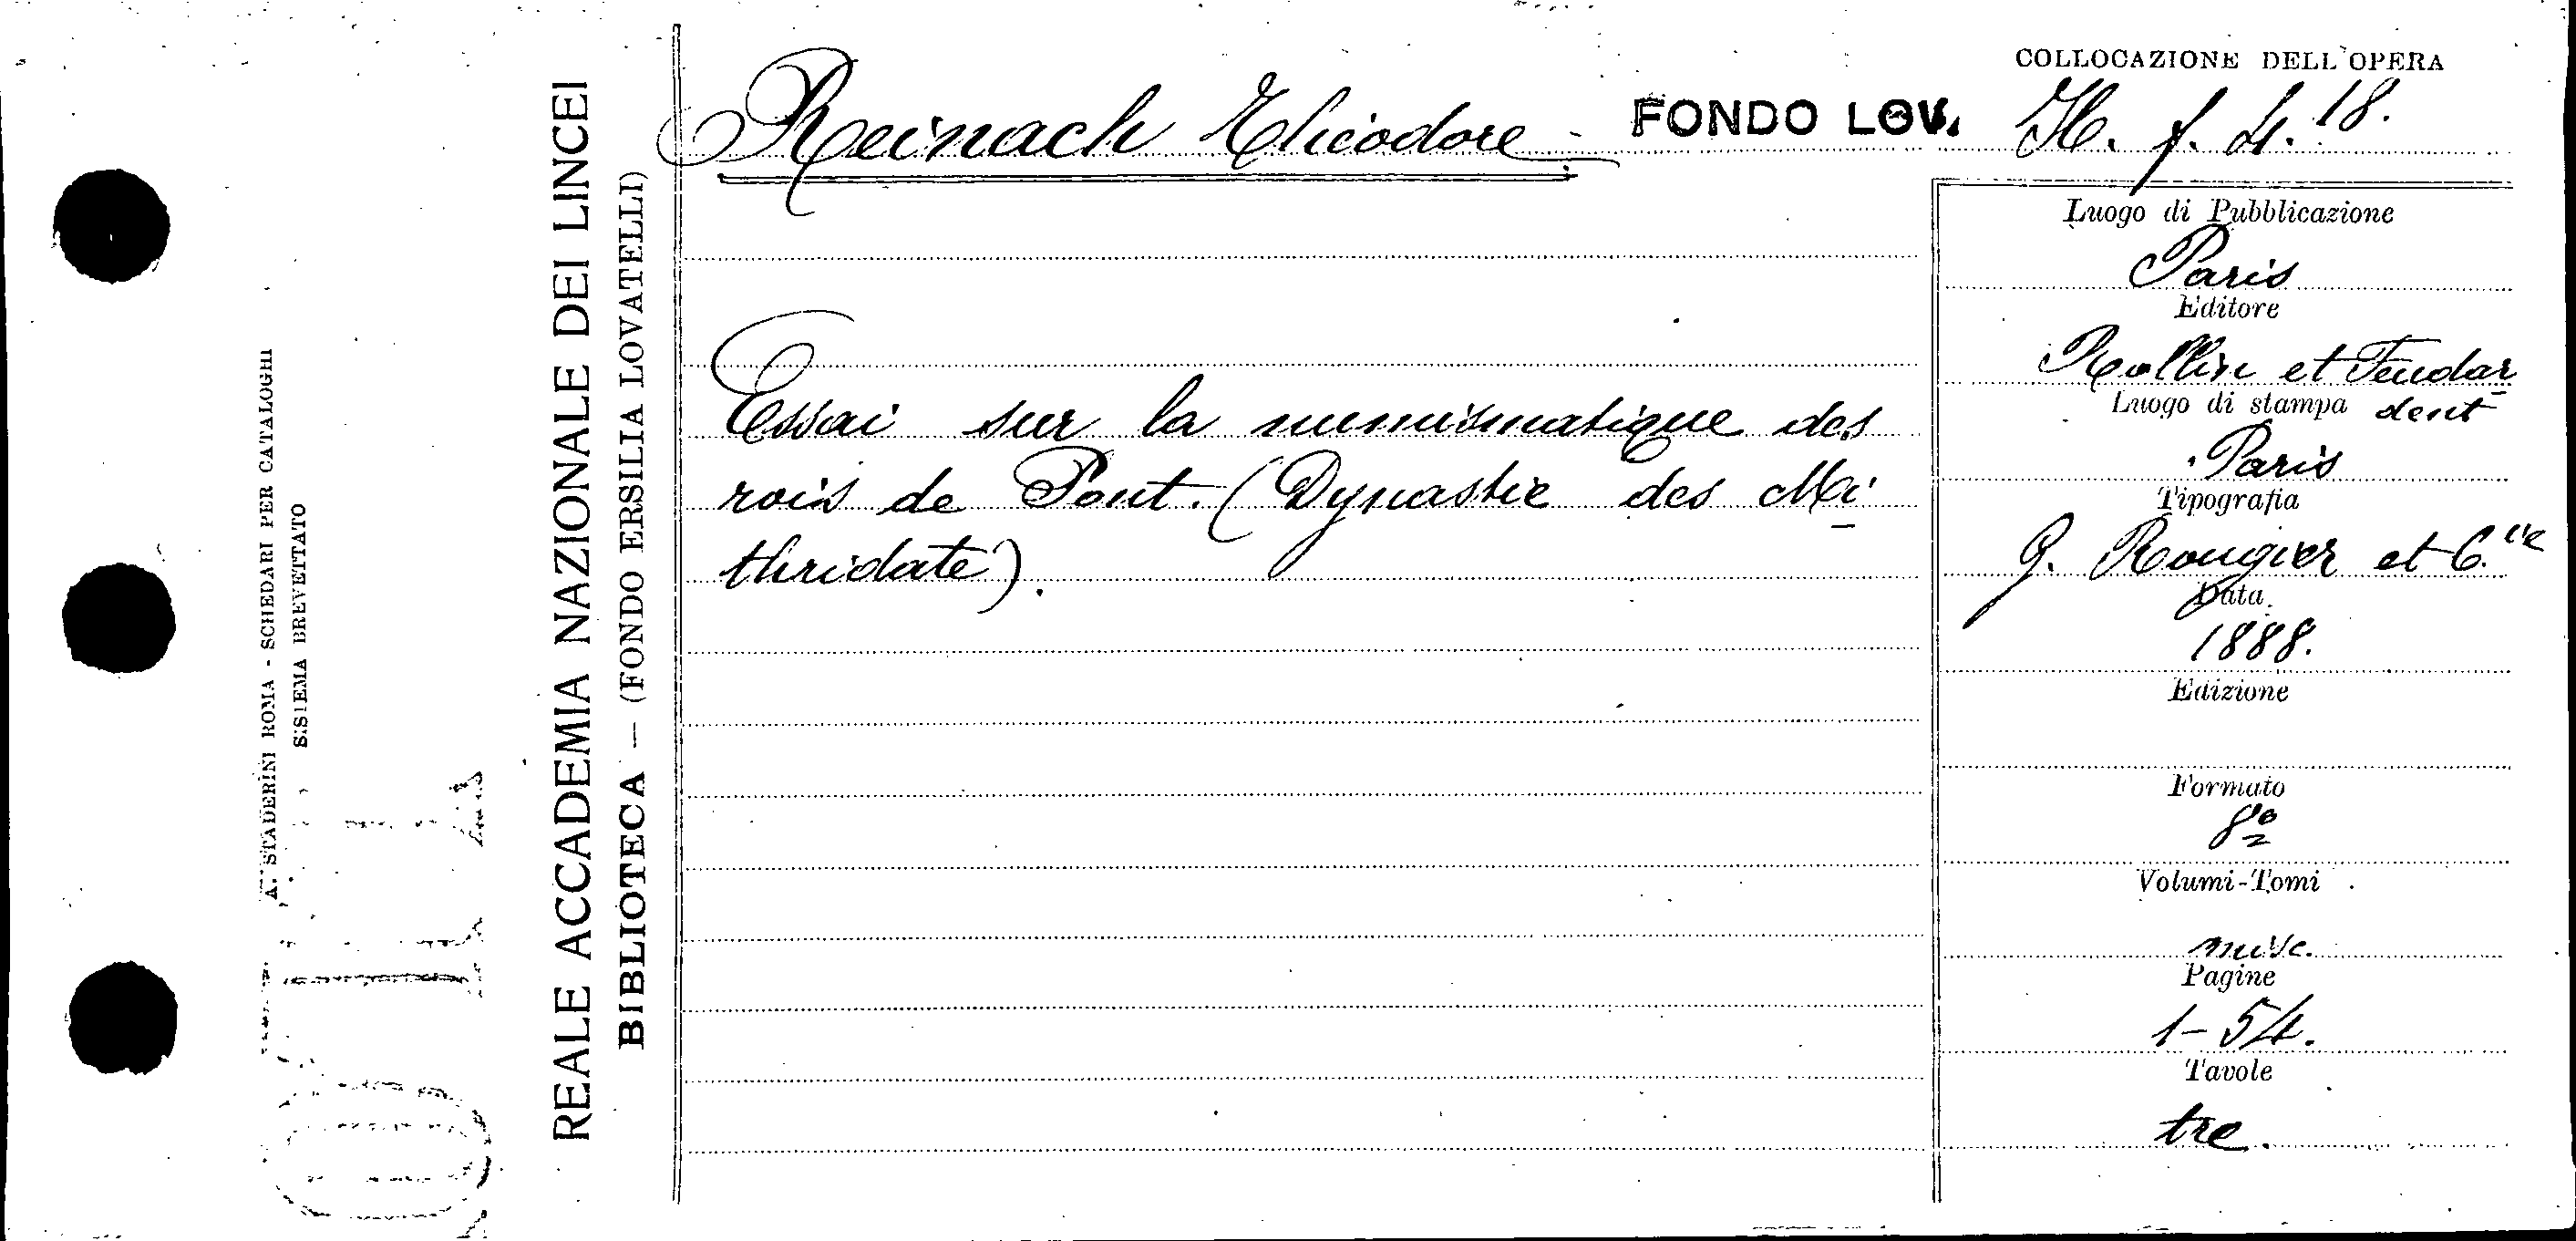 COLLOCAZIONE DELL'OPERA
Reinach Théodore.
FONDO LOV.
H. f. 4. 18.
Essai sur la numismatique des
rois de Pont. (Dynastie des Mi-
thridate).
Luogo di Pubblicazione
Paris
Editore
Rollin et Feudar
dent
Luogo di stampa
Paris
Tipografia
G. Rougier et C.ie
Data
1888.
Edizione
Formato
8º
Volumi-Tomi
misc.
Pagine
1-54.
Tavole
tre.
REALE ACCADEMIA NAZIONALE DEI LINCEI
BIBLIOTECA — (FONDO ERSILIA LOVATELLI)
A. STADERINI ROMA - SCHEDARI PER CATALOGHI
SISTEMA BREVETTATO